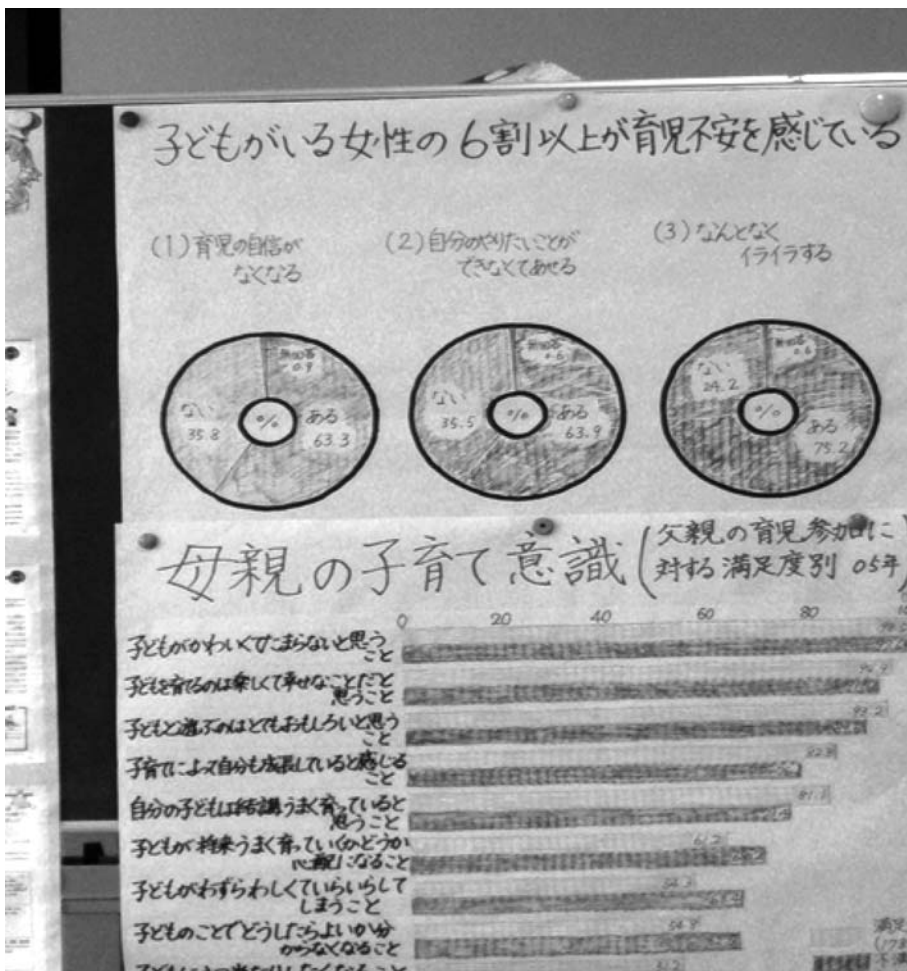 子どもがいる女性の6割以上が育児不安を感じている
(1) 育児の自信が
なくなる
(2) 自分のやりたいことが
できなくてあせる
(3) なんとなく
イライラする
無回答
0.9
ない
35.8
%
ある
63.3
無回答
0.6
ない
35.5
%
ある
63.9
無回答
0.6
ない
24.2
%
ある
75.2
母親の子育て意識
(父親の育児参加に
対する満足度別 05年)
0 20 40 60 80
子どもがかわいくてたまらないと思う
こと
子どもを育てるのは楽しくて幸せなことだと
思うこと
子どもと遊ぶのはとてもおもしろいと思う
こと
93.2
子育てによって自分も成長していると感じる
こと
82.8
自分の子どもは結構うまく育っていると
思うこと
81.1
子どもが将来うまく育っていくかどうか
心配になること
61.2
子どもがわずらわしくていらいらして
しまうこと
子どものことでどうしたらよいか分
からなくなること
54.9